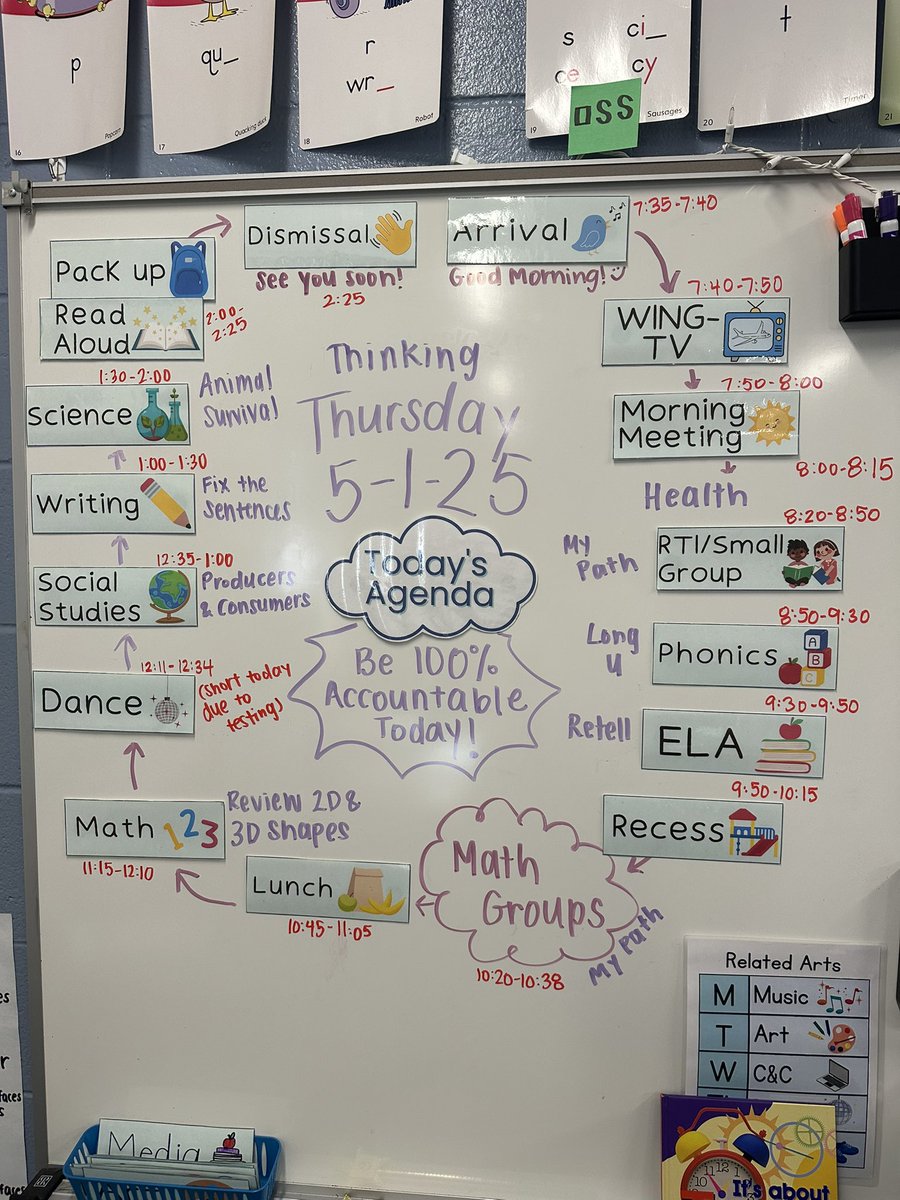 p
16
Popcorn
qu_
17
Quacking duck
r
wr_
18
Robot
s ci_
ce cy
19
Sausages
t
20
Timer
21
Arrival
7:35-7:40
Good Morning!
WING-
TV
7:40-7:50
Morning
Meeting
7:50-8:00
Health
8:00-8:15
My
Path
RTI/Small
Group
8:20-8:50
Long
u
Phonics
A
B
C
8:50-9:30
Retell
ELA
9:30-9:50
Recess
9:50-10:15
Math
Groups
My Path
10:20-10:38
Lunch
10:45-11:05
Math 123
11:15-12:10
Review 2D &
3D Shapes
Dance
12:11-12:34
(short today
due to
testing)
Social
Studies
12:35-1:00
Producers
& Consumers
Writing
1:00-1:30
Fix the
Sentences
Science
1:30-2:00
Animal
Survival
Read
Aloud
2:00-
2:25
Pack up
Dismissal
See you soon!
2:25
Thinking
Thursday
5-1-25
Today's
Agenda
Be 100%
Accountable
Today!
Related Arts
M Music
T Art
W C&C
Media
It's about